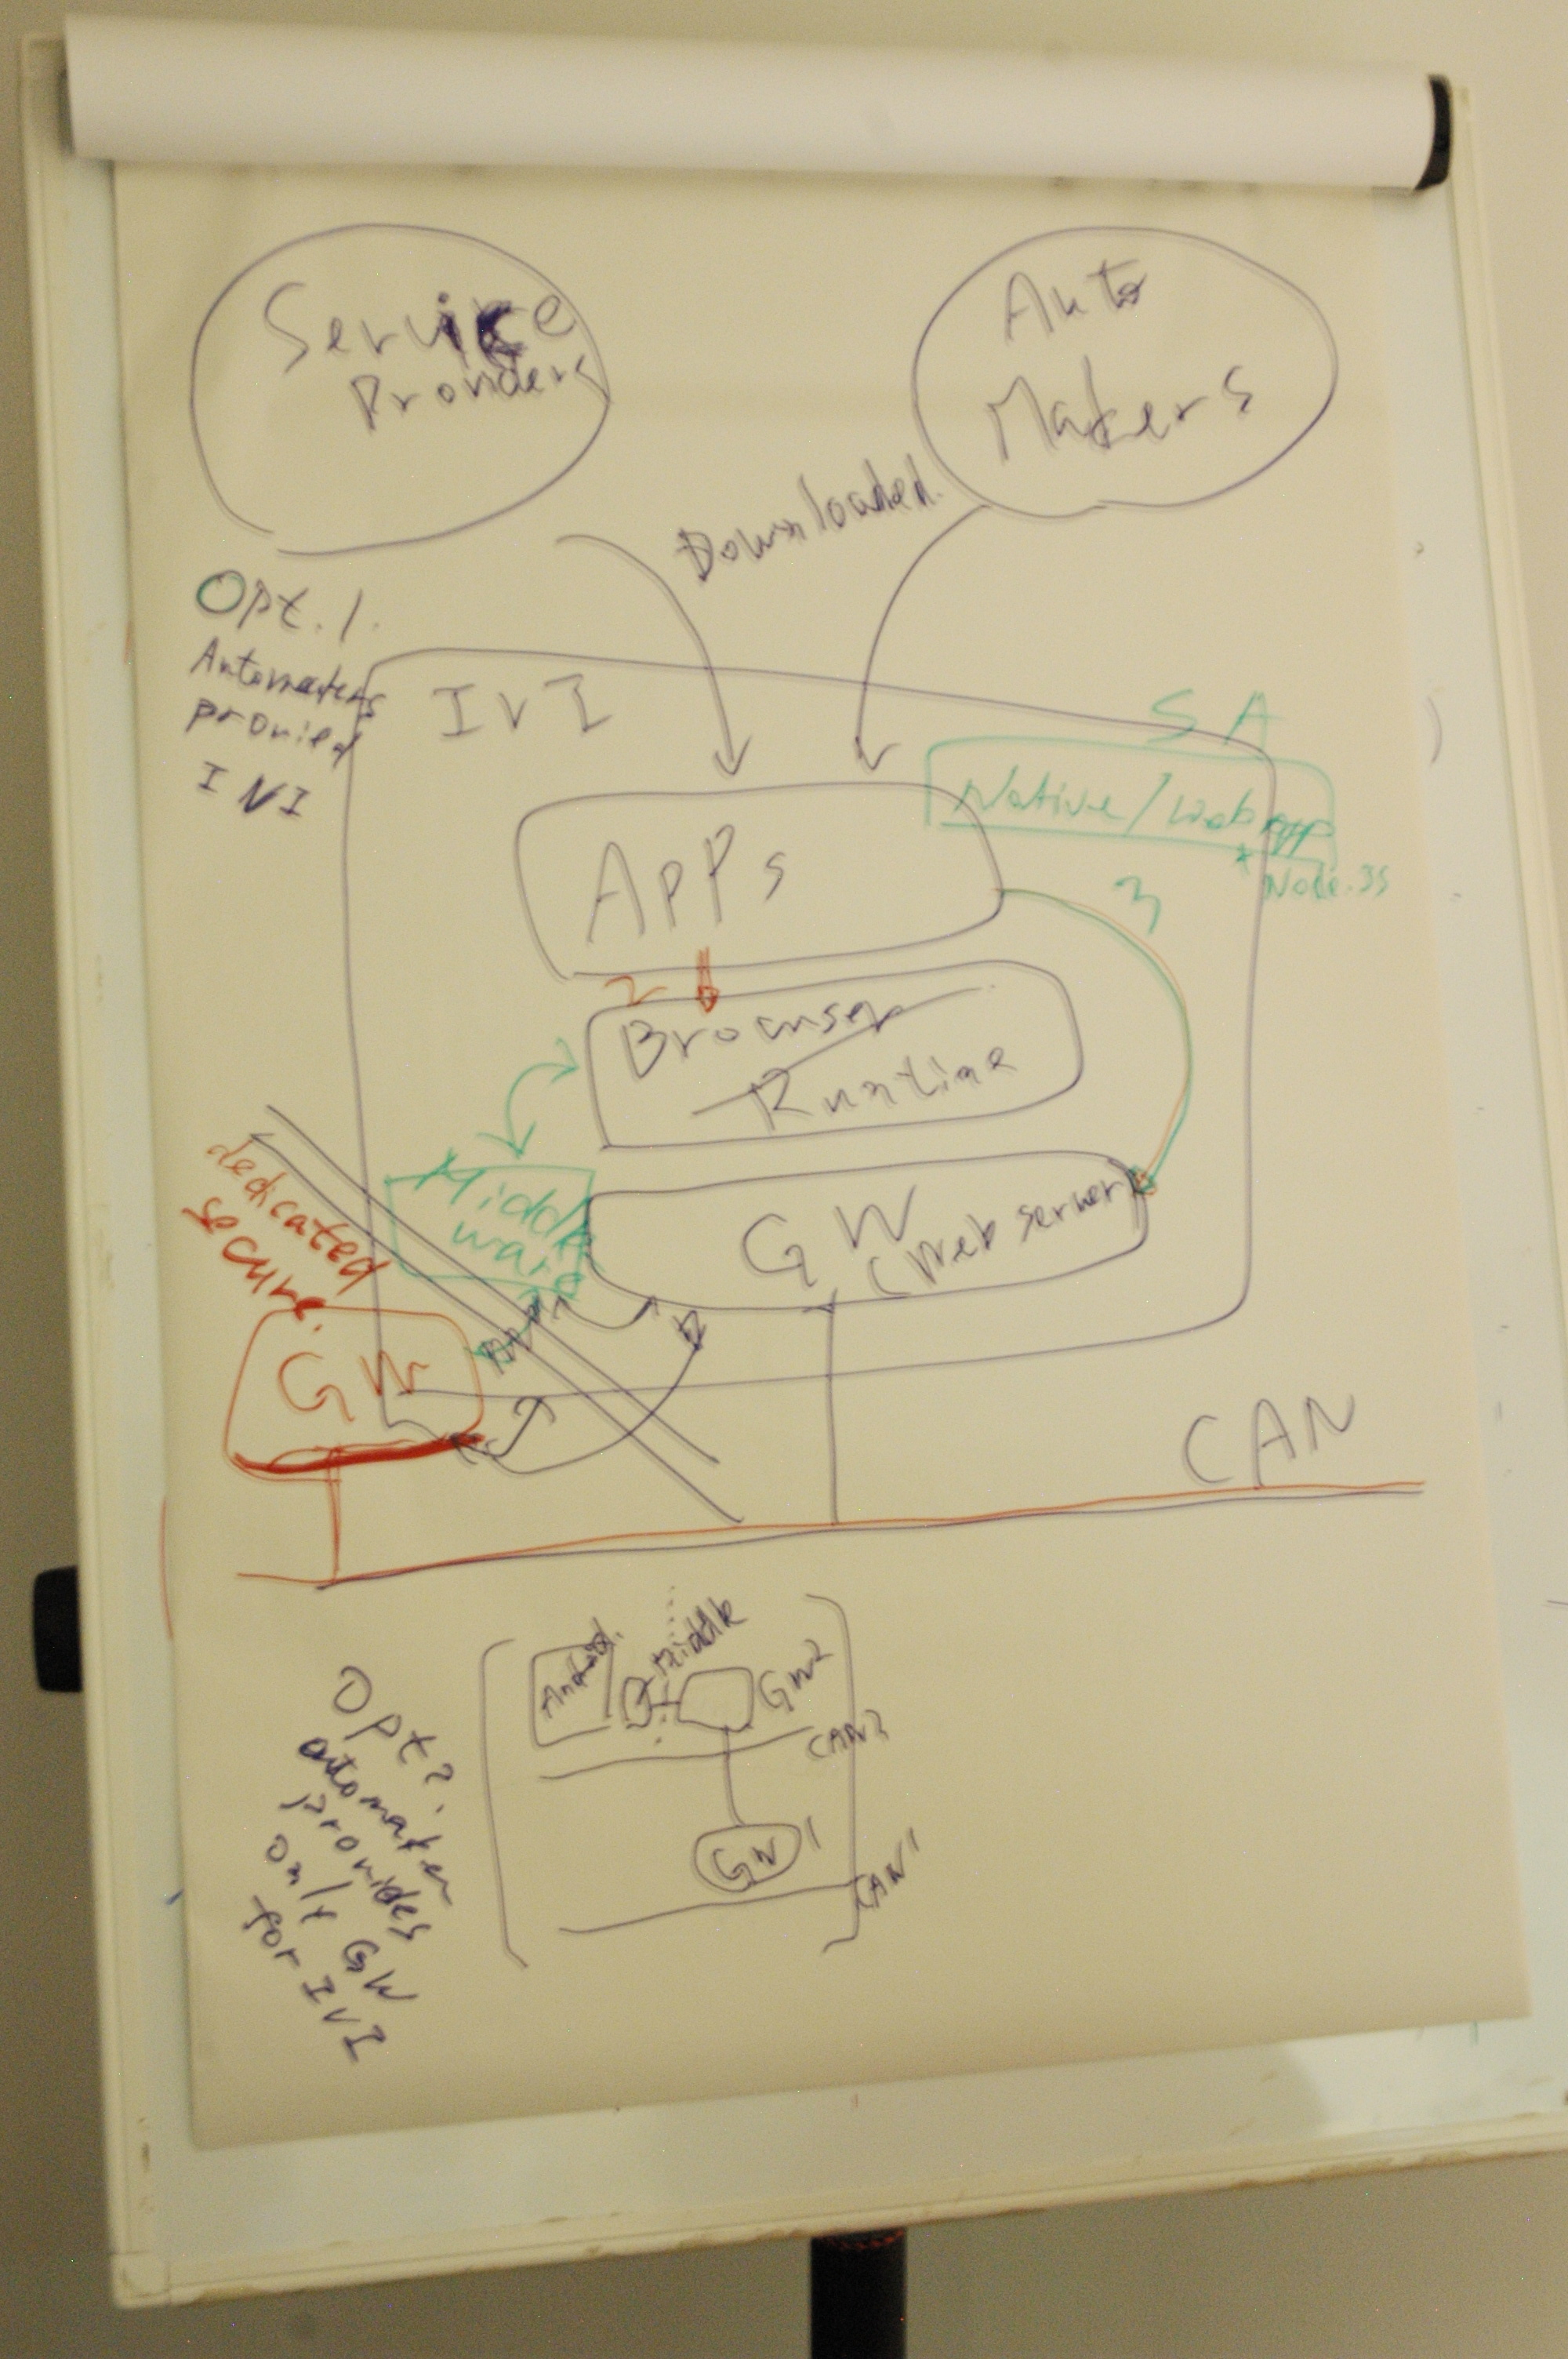 Service
Providers
Auto
Makers
Downloaded.
Opt. 1.
Automakers
provied
IVI
IVI
SA
Native/Web app
* Node.JS
Apps
3
2
Browser
Runtime
Middle
ware
GW
(Web server)
dedicated
secure.
GW
CAN
Opt2.
automaker
provides
only GW
for IVI
Android.
Middle
GW2
CAN2
GW1
CAN1